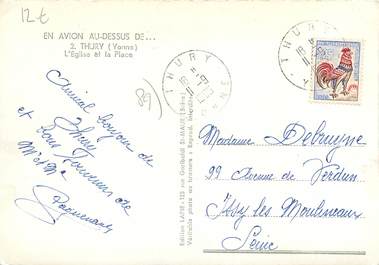 12€
EN AVION AU-DESSUS DE...
2. THURY (Yonne)
L'Eglise et la Place
THURY
YONNE
THURY
(89)
Amical bonjour de
Thury
et bons souvenirs de
Mr et Me
Madame Debruyne
99 Avenue de Verdun
Issy les Moulineaux
Seine
Edition LAPIE - 123 rue Garibaldi St-MAUR (Seine)
Véritable photo au bromure - Reprod. interdite